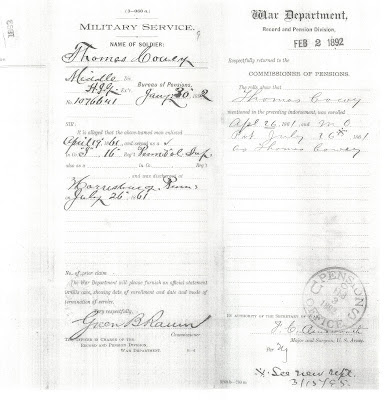 (3—060 a.)
MILITARY SERVICE.
NAME OF SOLDIER:
Thomas
Middle Div.
Bureau of Pensions,
No. 1076641
Jan'y 30, 1892
SIR:
It is alleged that the above-named man enlisted
April 19, 1861, and served as a
in Co. 16 Reg't Penn Vol Inf
also as a in Co. Reg't
and was discharged at
Harrisburg, Penn
July 26, 1861
No. of prior claim
The War Department will please furnish an official statement
in this case, showing date of enrollment and date and mode of
termination of service.
Very respectfully,
Green B Raum
Commissioner.
THE OFFICER IN CHARGE OF THE
RECORD AND PENSION DIVISION,
WAR DEPARTMENT.
War Department,
Record and Pension Division,
FEB 2 1892
Respectfully returned to the
COMMISSIONER OF PENSIONS.
The rolls show that
Thomas
mentioned in the preceding indorsement, was enrolled
Apl 26, 1861, and M.O.
July 30th 1861
as Thomas
U.S. PENSION OFFICE
BY AUTHORITY OF THE SECRETARY OF WAR:
F. C. Ainsworth
Major and Surgeon, U. S. Army.
Per
See new rept.
3/15/95.